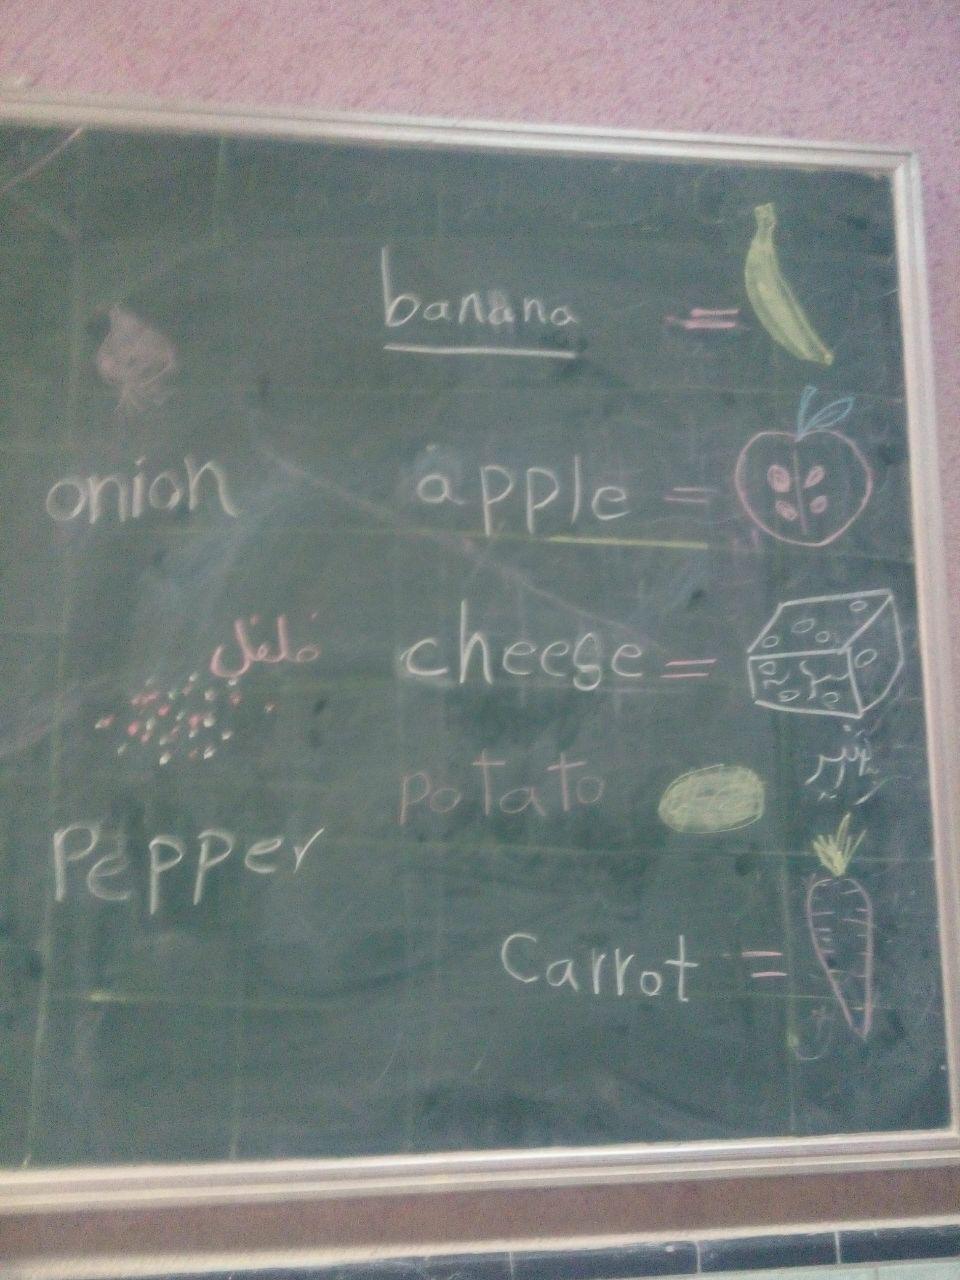 banana =
onion
apple =
فلفل
cheese =
پنیر
potato
Pepper
Carrot =